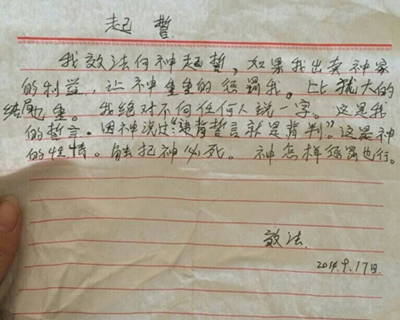 起誓
我效法向神起誓，如果我出卖神家
的利益，让神重重的惩罚我。比犹大的
结尾重。我绝对不向任何人说一字。这是我
的誓言。因神说过“违背誓言就是背判”。这是神
的性情。触犯神必死。神怎样惩罚也行。
效法
2014.9.17日